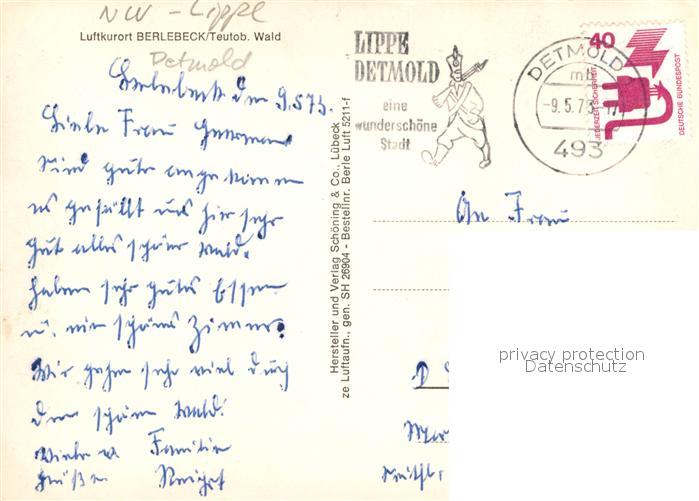 NW - Lippe
Luftkurort BERLEBECK/Teutob. Wald
Detmold
Berlebeck den 9.5.73.
Liebe Frau
Sind gut angekommen
es gefällt uns hier sehr
gut alles schöner Wald.
haben sehr gutes Essen
u. ein schönes Zimmer.
Wir gehen sehr viel durch
den schönen Wald.
Viele Familie
Grüßen
Hersteller und Verlag Schöning & Co., Lübeck
ze Luftaufn., gen. SH 26904 - Bestellnr. Berle Luft 5211-f
LIPPE
DETMOLD
eine
wunderschöne
Stadt
DETMOLD
mb
-9.5.73
493
40
JEDERZEIT SICHERHEIT
DEUTSCHE BUNDESPOST
An Frau
privacy protection
Datenschutz